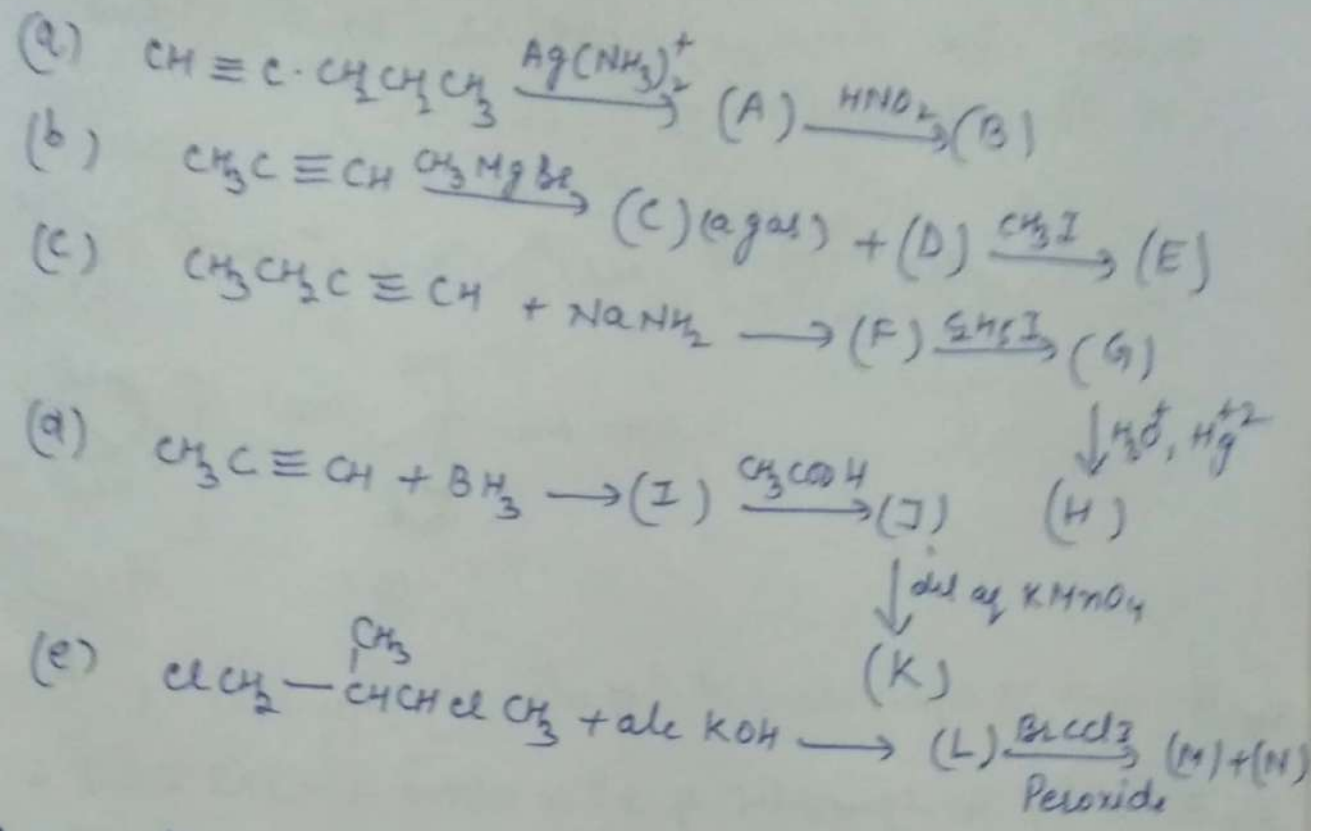 (a) CH ≡ C·CH₂CH₂CH₃ Ag(NH₃)₂⁺ → (A) HNO₂ → (B)
(b) CH₃C ≡ CH CH₃MgBr → (C) (a gas) + (D) CH₃I → (E)
(c) CH₃CH₂C ≡ CH + NaNH₂ → (F) C₂H₅I → (G)
↓ H₃O⁺, Hg⁺²
(d) CH₃C ≡ CH + BH₃ → (I) CH₃COOH → (J) (H)
↓ dil aq KMnO₄
(K)
CH₃
(e) ClCH₂ — CHCHClCH₃ + alc KOH → (L) BrCCl₃ → (M) + (N)
Peroxide